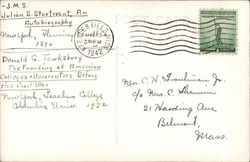 -J.M.S.
Julian S. Sturtevant, An
Autobiography
New York, Fleming
1896
Donald G. Tewksbury
The Founding of American
Colleges & Universities Before
the Civil War
New York, Teachers College
Columbia Univ. 1932
1942
Mrs. C. H. Troutman Jr.
c/o Mrs. C.
21 Harding Ave
Belmont,
Mass.